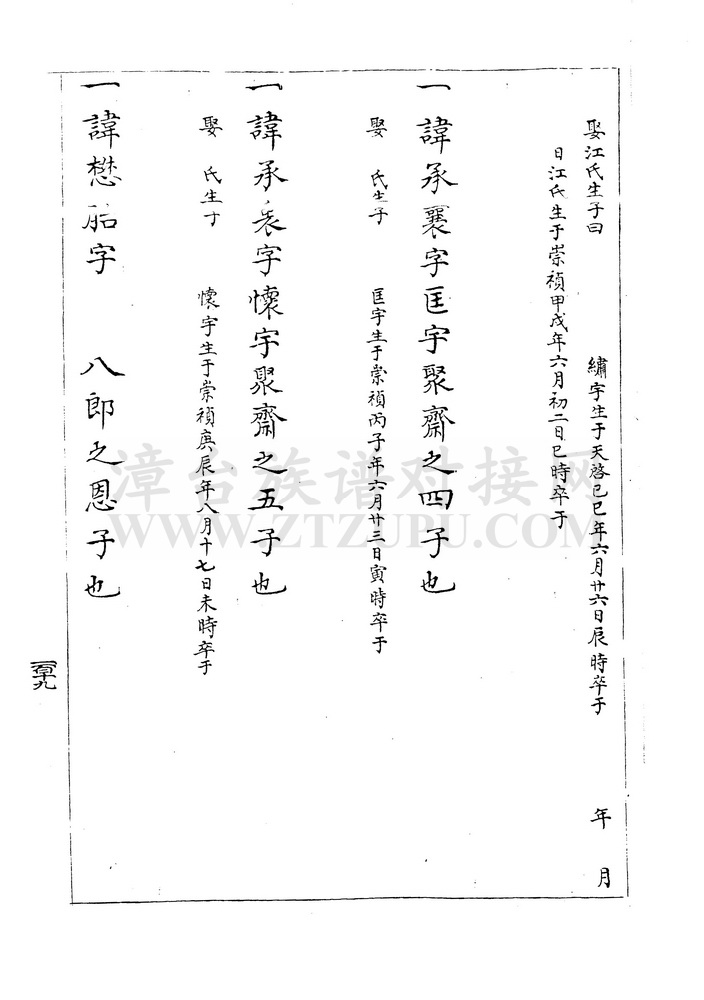 娶江氏生子曰 繡宇生于天啓己巳年六月廿六日辰時卒于 年 月
日江氏生于崇禎甲戌年六月初二日巳時卒于
一諱承襄字匡宇聚齋之四子也
娶 氏生子 匡宇生于崇禎丙子年六月廿三日寅時卒于
一諱承 字懷宇聚齋之五子也
娶 氏生 懷宇生于崇禎庚辰年八月十七日未時卒于
一諱懋 字 八郎之恩子也
漳台族谱对接网
WWW.ZTZUPU.COM